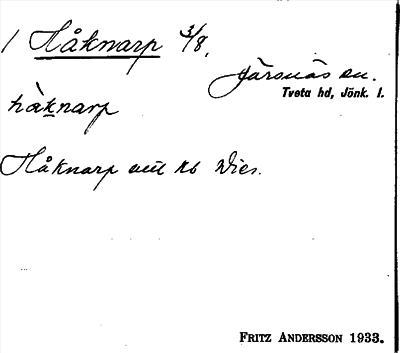 1 Håknarp 3/8.
Järsnäs sn.
Tveta hd, Jönk. l.
hàknarp
Håknarp enl kb dics.
FRITZ ANDERSSON 1933.